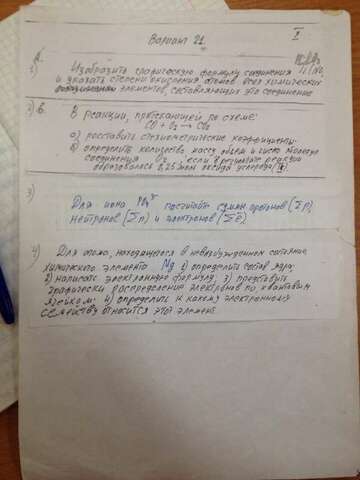 Вариант 21
I
1) Изобразить графическую формулу соединения
и указать степени окисления атомов всех химических
элементов, составляющих это соединение
2) В. В реакции, протекающей по схеме:
CO + O₂ → CO₂
а) расставить стехиометрические коэффициенты
определить количество, массу, объем и число молекул
соединения O₂, если в результате реакции
образовалось 2,25 моль оксида углерода
3) Для иона посчитать сумм. протонов (Σp),
нейтронов (Σn) и электронов (Σē).
4) Для атома, находящегося в невозбужденном состоянии
химического элемента Mg 1) определить состав ядра;
2) написать электронную формулу; 3) представить
графически распределение электронов по квантовым
ячейкам; 4) определить к какому электронному
семейству относится этот элемент.